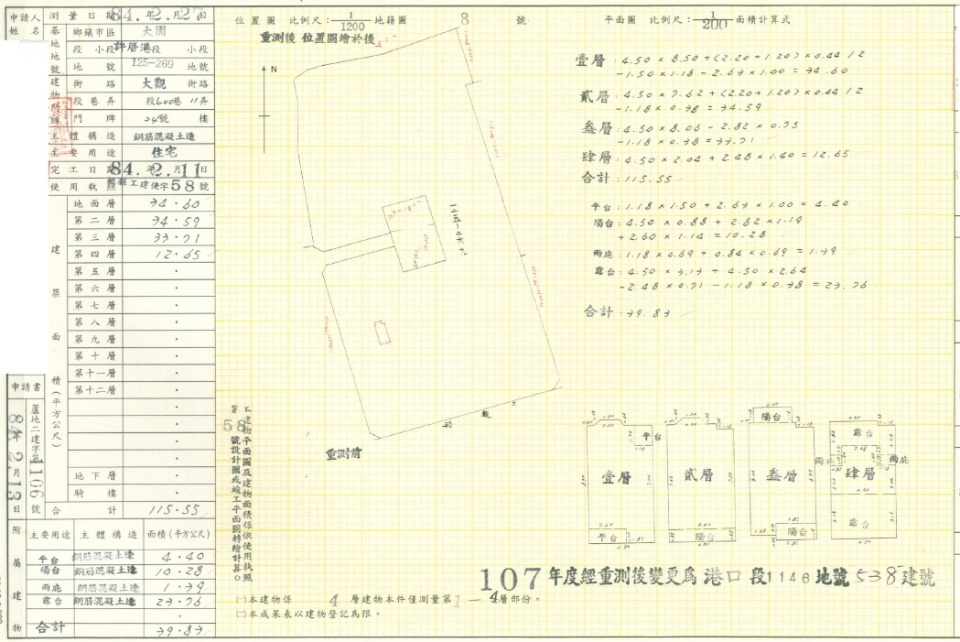 申請人姓名
測量日期 84.2.27
位置圖 比例尺：1/1200 地籍圖 8 號
平面圖 比例尺：1/200 面積計算式
重測後 位置圖繪於後
基地地號
鄉鎮市區 大園
段 小段 許厝港段 小段
地號 125-269 地號
建物門牌
街路 大觀 街路
段巷弄 段600巷 11弄
門牌 24號 樓
主體構造 鋼筋混凝土造
主要用途 住宅
完工日期 84.2.11
使用執照 工建使字58號
建築面積(平方公尺)
地面層 34.60
第二層 34.59
第三層 33.71
第四層 12.65
第五層
第六層
第七層
第八層
第九層
第十層
第十一層
第十二層
地下層
騎樓
合計 115.55
申請書
84年2月13日
蘆地二建字第1106號
附屬建物
主要用途 主體構造 面積(平方公尺)
平台 鋼筋混凝土造 4.40
陽台 鋼筋混凝土造 10.28
雨庇 鋼筋混凝土造 1.39
露台 鋼筋混凝土造 23.76
合計 39.83
壹層：4.50×8.50+(2.20+1.20)×0.44/2
-1.50×1.18-2.63×1.00=34.60
貳層：4.50×7.62+(2.20+1.20)×0.44/2
-1.18×0.38=34.59
叁層：4.50×8.06-2.82×0.75
-1.18×0.38=33.71
肆層：4.50×2.04+2.48×1.40=12.65
合計：115.55
平台：1.18×1.50+2.63×1.00=4.40
陽台：4.50×0.88+2.82×1.19
+2.60×1.14=10.28
雨庇：1.18×0.69+0.84×0.69=1.39
露台：4.50×3.13+4.50×2.64
-2.48×0.71-1.18×0.38=23.76
合計：39.83
重測前
本建物平面圖及建物面積係依使用執照
第58號設計圖或竣工平面圖轉繪計算。
平台
壹層
平台
貳層
陽台
陽台
叁層
陽台
露台
雨庇
肆層
雨庇
露台
107年度經重測後變更為 港口 段1146地號538建號
㈠本建物係 4 層建物本件僅測量第1－4層部份。
㈡本成果表以建物登記為限。